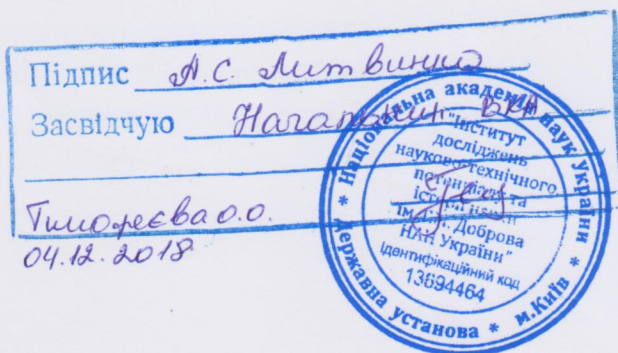 Підпис А.С. Литвинко
Засвідчую Начальник ВК
Тимофєєва О.О.
04.12.2018
* Національна академія наук України *
Державна установа * м.Київ *
"Інститут
досліджень
науково-технічного
потенціалу та
історії науки
ім. Г.М. Доброва
НАН України"
Ідентифікаційний код
13694464